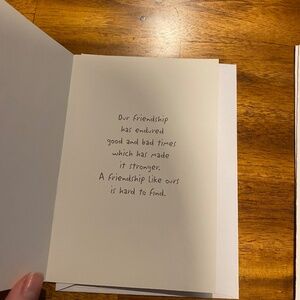 Our friendship
has endured
good and bad times
which has made
it stronger.
A friendship like ours
is hard to find.